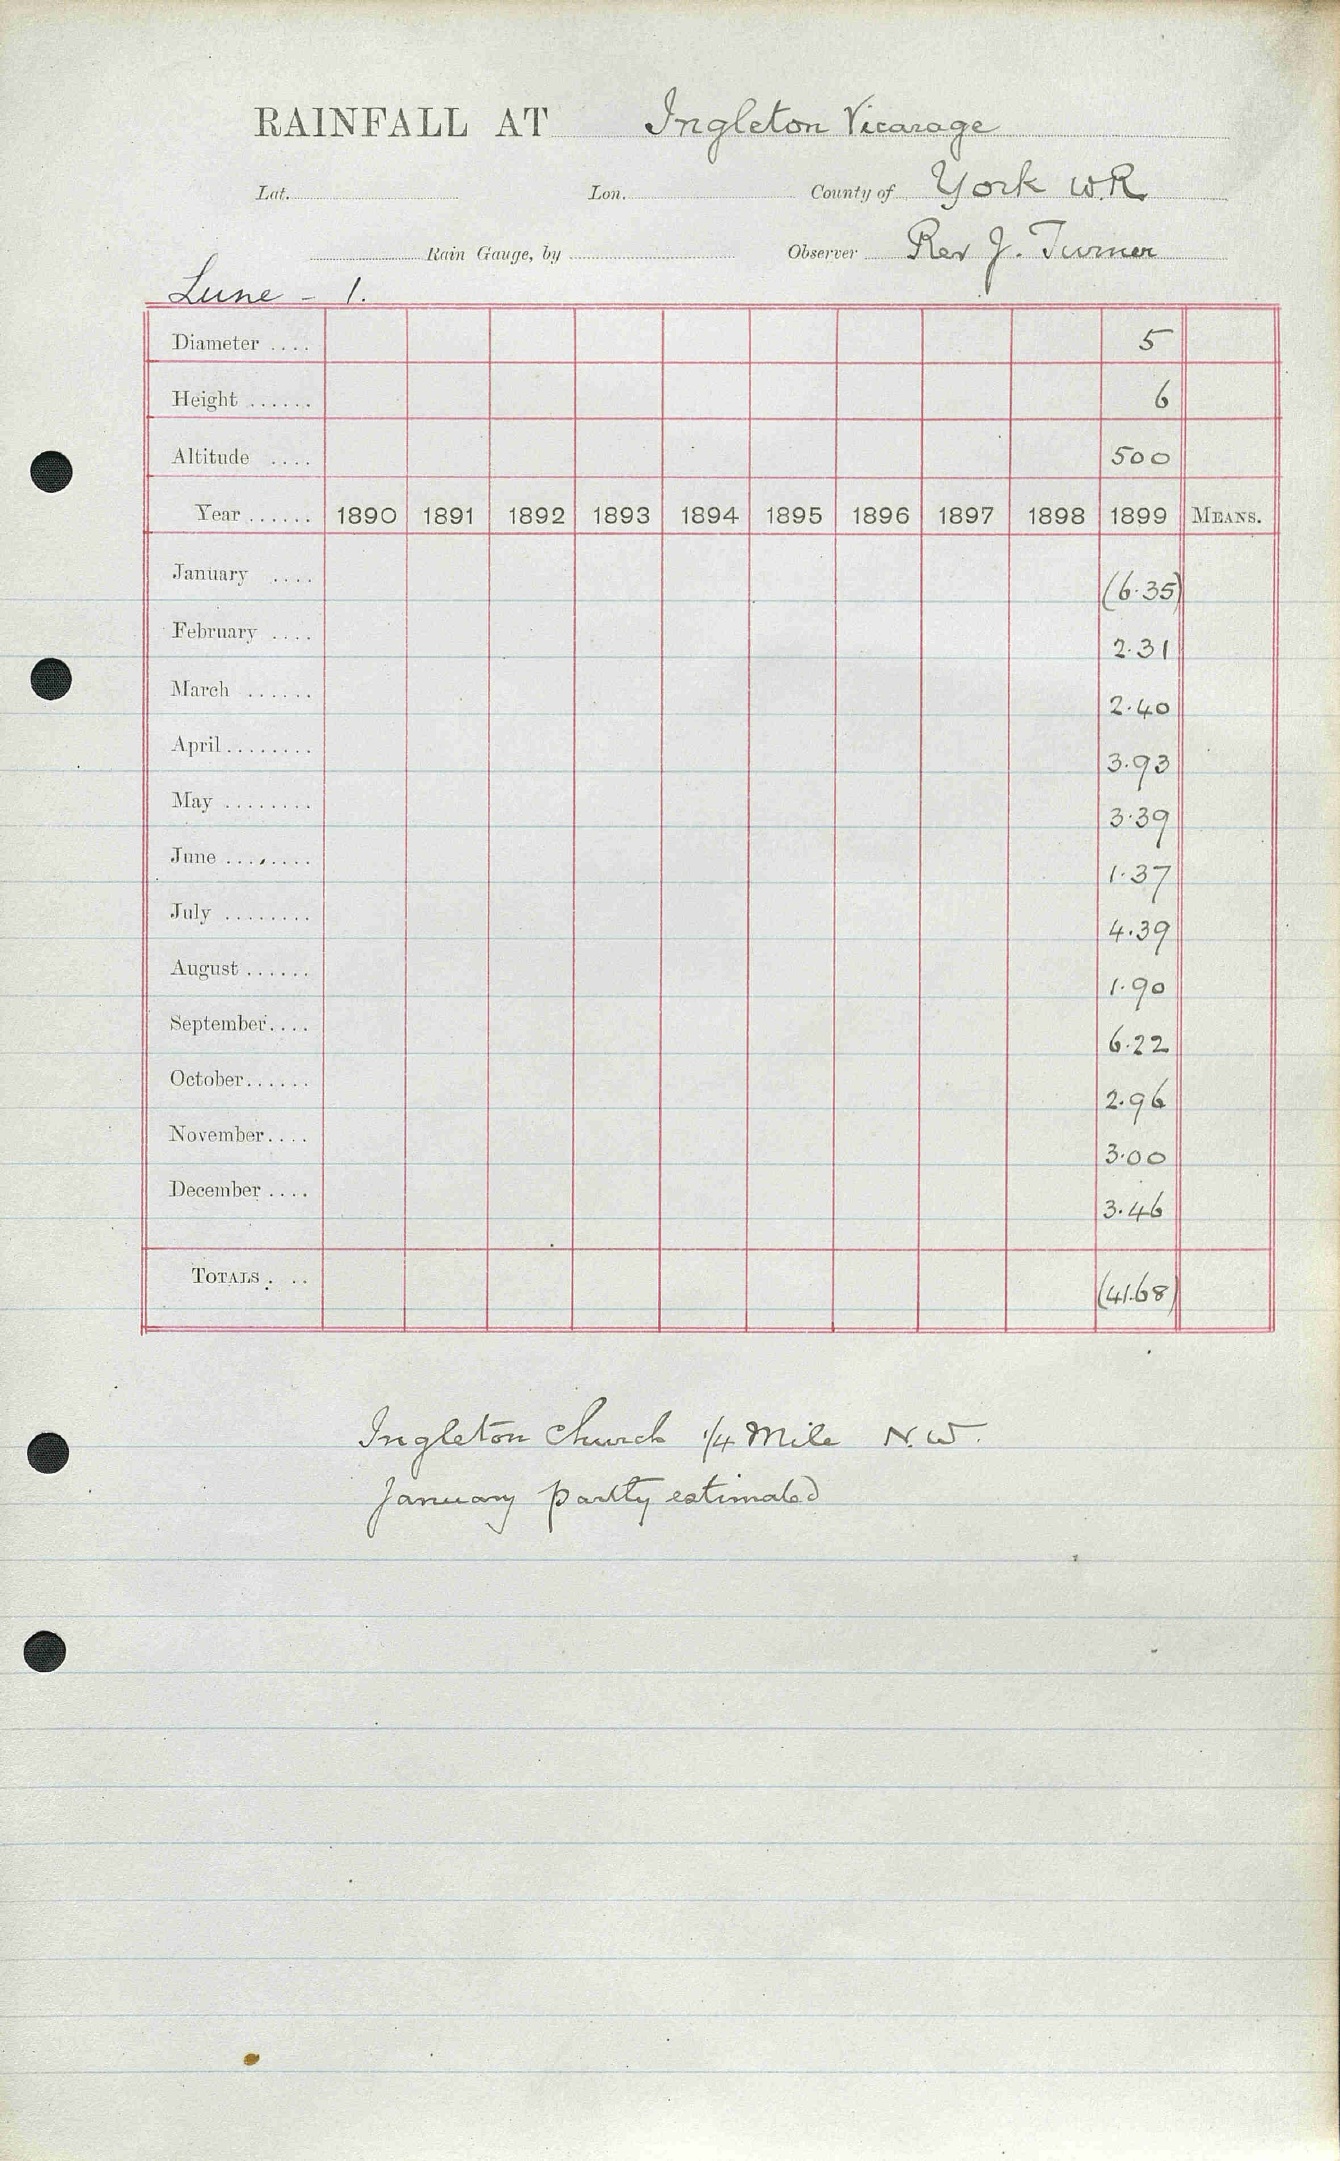 RAINFALL AT Ingleton Vicarage
Lat. Lon. County of York W.R
Rain Gauge, by Observer Rev J. Turner
Lune - 1.
Diameter .... 5
Height ...... 6
Altitude .... 500
Year ...... 1890 1891 1892 1893 1894 1895 1896 1897 1898 1899 MEANS.
January .... (6.35)
February .... 2.31
March ...... 2.40
April ........ 3.93
May ........ 3.39
June ........ 1.37
July ........ 4.39
August ...... 1.90
September.... 6.22
October...... 2.96
November.... 3.00
December .... 3.46
TOTALS . .. (41.68)
Ingleton Church 1/4 Mile N.W.
January partly estimated